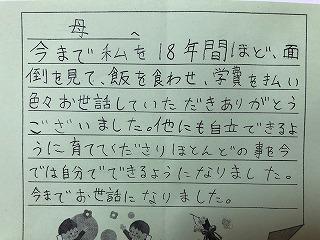 母 へ
今まで私を18年間ほど、面
倒を見て、飯を食わせ、学費を払い
色々お世話していただきありがとう
ございました。他にも自立できるよ
うに育ててくださりほとんどの事を今
では自分でできるようになりました。
今までお世話になりました。